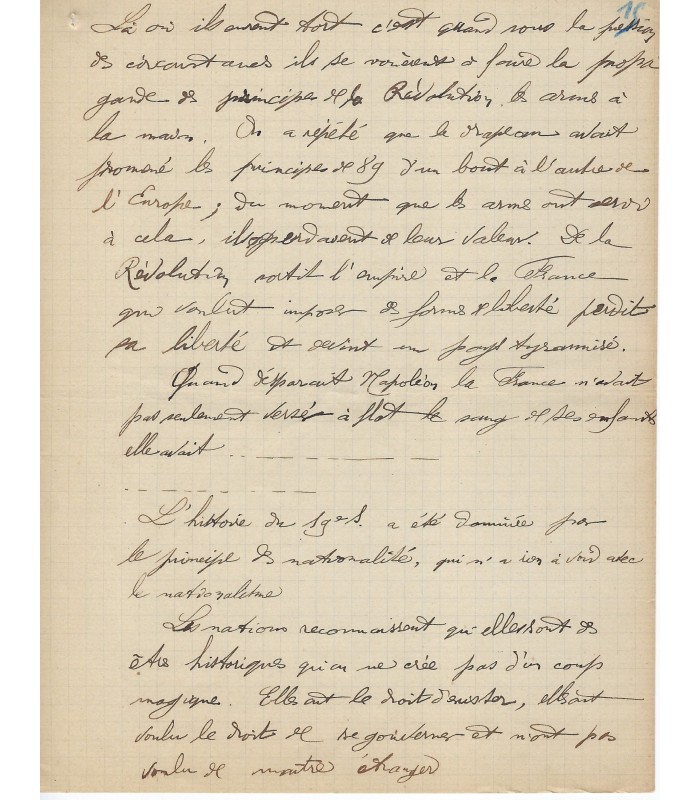 15
Là où ils eurent tort c'est quand sous la pression
des circonstances ils se voirent à faire la propa
gande des principes de la Révolution, les arms à
la main. On a répété que le drapeau avait
promené les principes de 89 d'un bout à l'autre de
l'Europe ; du moment que les armes ont servi
à cela, ils perdavent de leur valeur. De la
Révolution sortit l'empire et la France
qui voulut imposer des forms de liberté perdit
sa liberté et devint un pays tyrannisé.
Quand disparait Napoléon la France n'avait
pas seulement versé à flot le sang de ses enfants
elle avait ...
L'histoire du 19e S. a été dominée par
le principe des nationalité, qui n'a rien à voir avec
le nationalisme
Les nations reconnaissent qu'elles sont des
être historiques qu'on ne crée pas d'un coup
magique. Elles ont le droit d'exister, elles ont
voulu le droit de se gouverner et n'ont pas
voulu de maître étranger